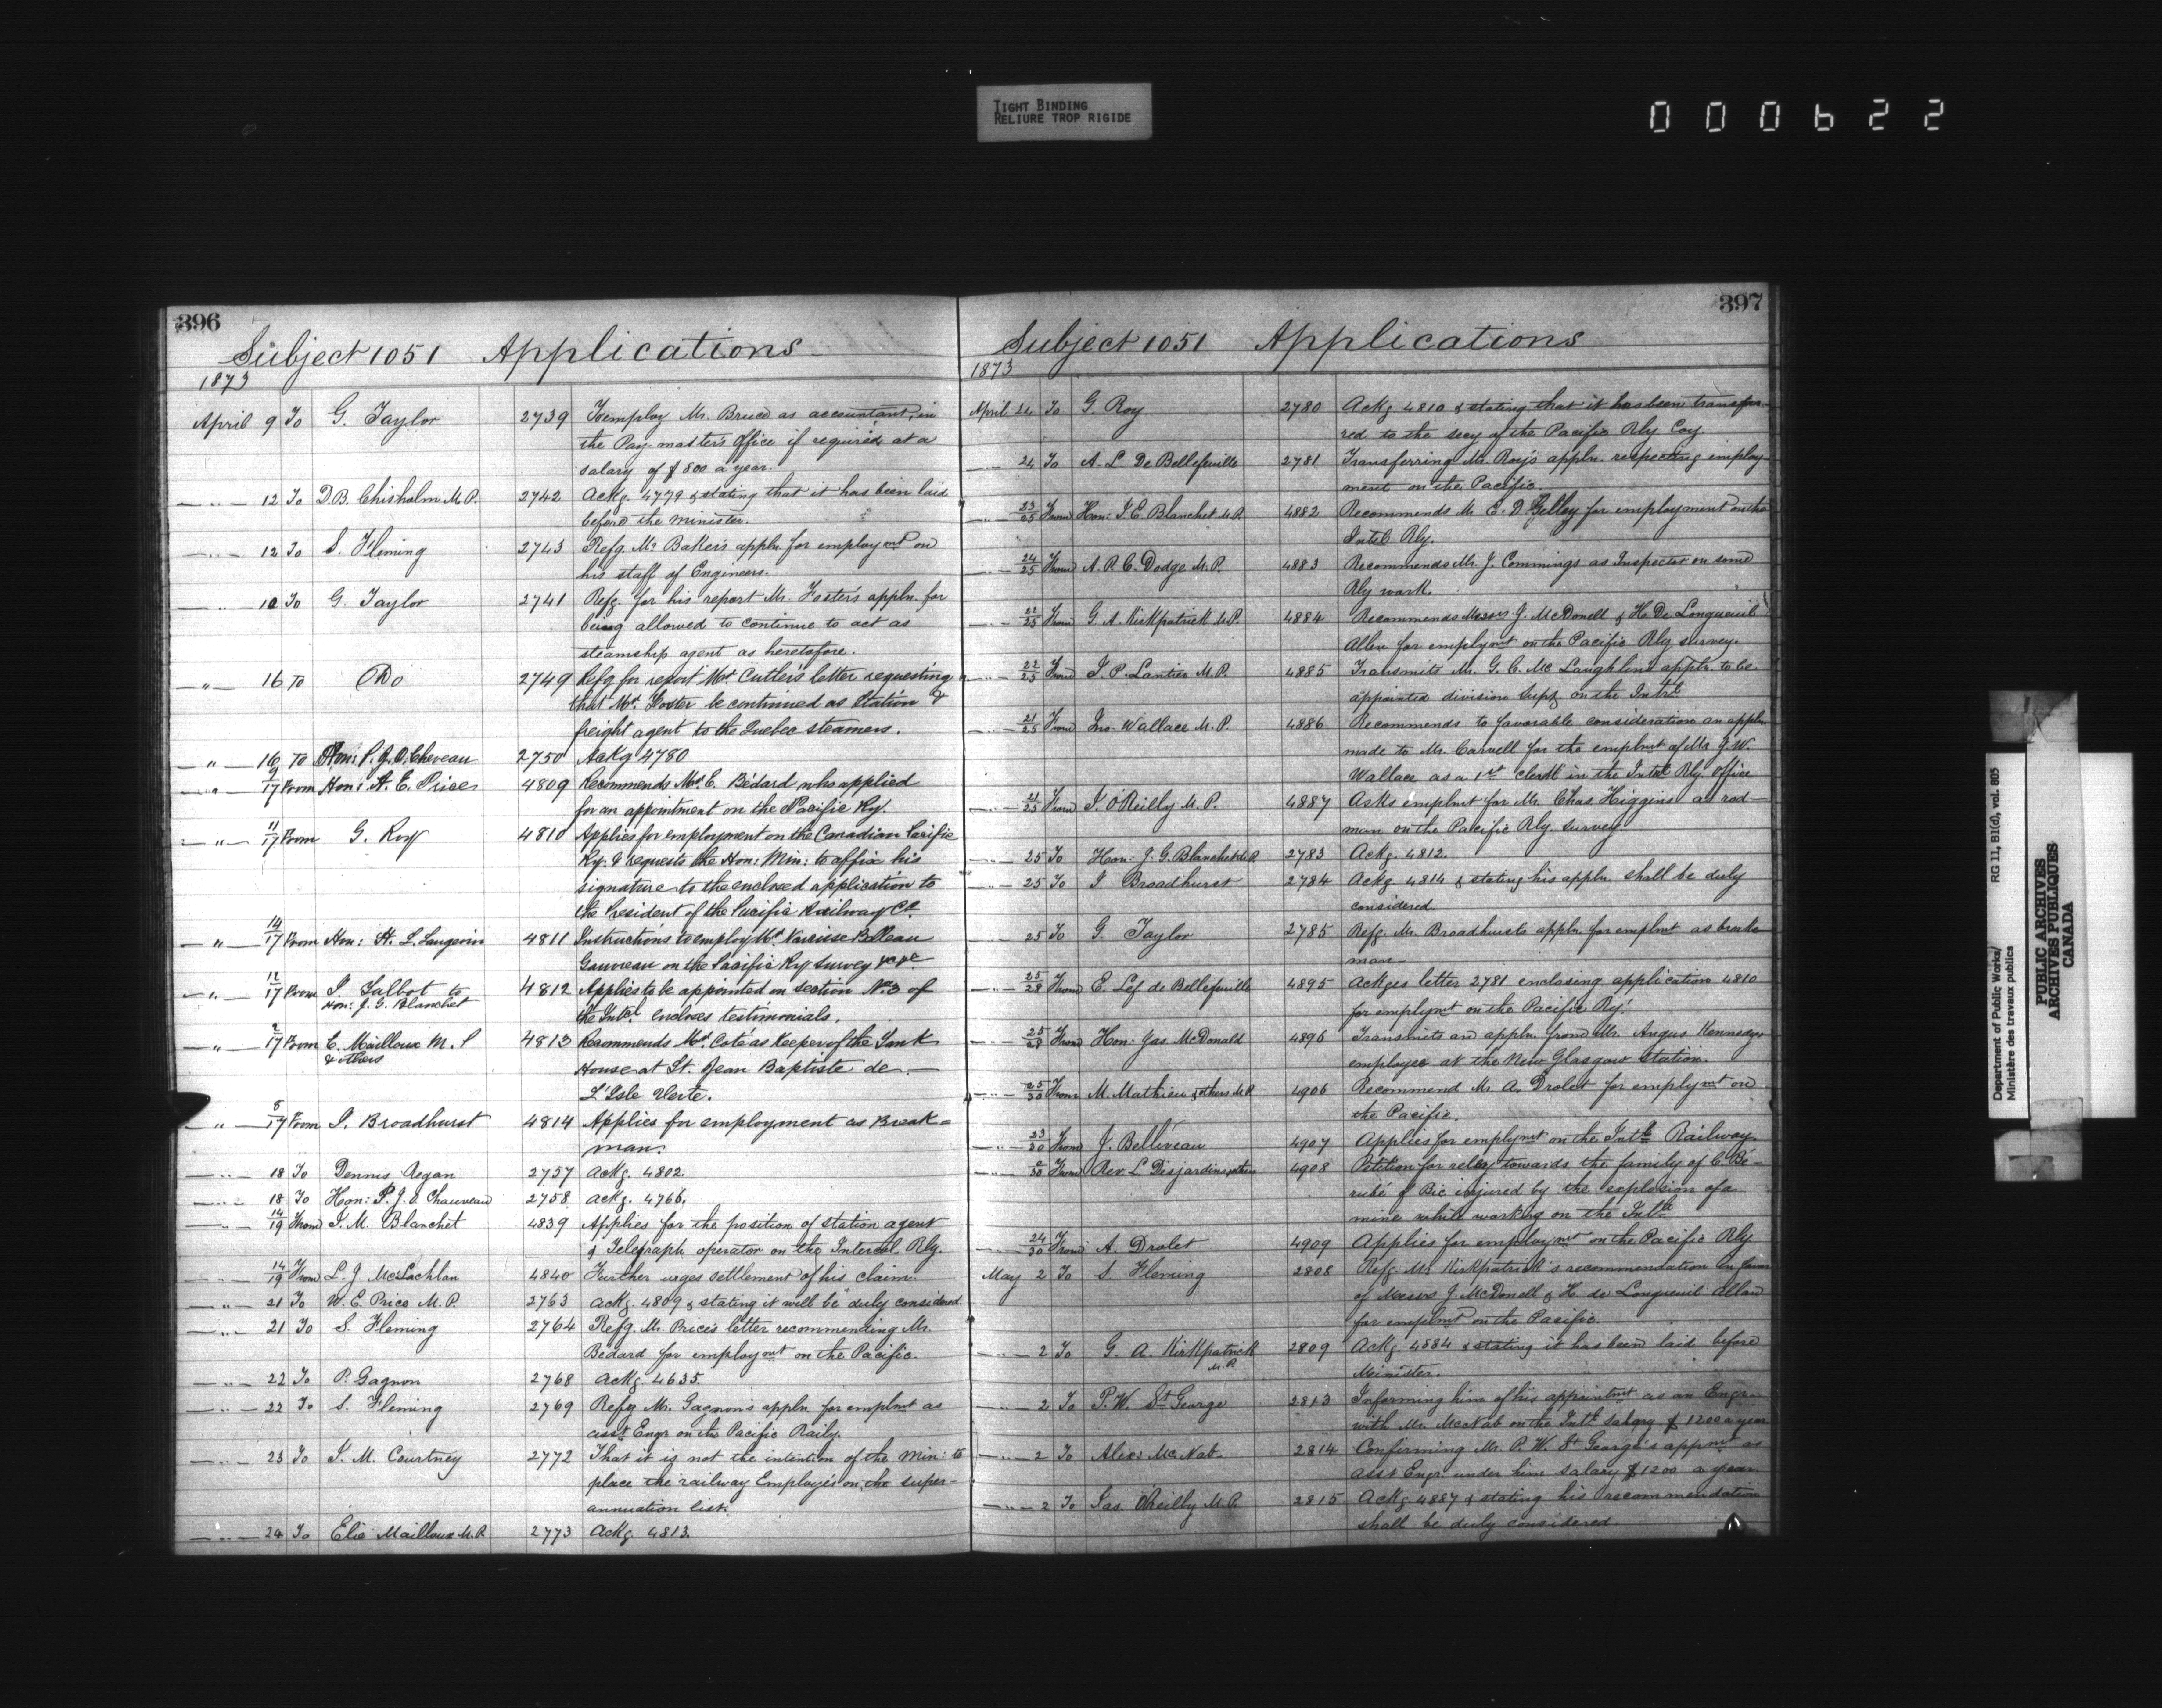 TIGHT BINDING
RELIURE TROP RIGIDE
000622
396
Subject 1051 Applications
1873
April 9 To G. Taylor 2739 To employ Mr. Bruce as accountant in
the Pay-master's office if required, at a
salary of $800 a year.
" 12 To D.B. Chisholm M.P. 2742 Ackg. 4779 & stating that it has been laid
before the minister.
" 12 To S. Fleming 2743 Refg. Mr Baker's appln. for employmt on
his staff of Engineers.
" 10 To G. Taylor 2741 Refg. for his report Mr. Foster's appln. for
being allowed to continue to act as
steamship agent as heretofore.
" 16 To Do 2749 Refg for report Mr Cutler's letter requesting
that Mr. Foster be continued as Station &
freight agent to the Quebec steamers.
" 16 To Hon: P.J.O. Cheveau 2750 Ackg 4780
" 9/17 From Hon: H. E. Prices 4809 Recommends Mr. E. Bédard who applied
for an appointment on the Pacific Ry.
" 11/17 From G. Roy 4810 Applies for employment on the Canadian Pacific
Ry. & requests the Hon: Min: to affix his
signature to the enclosed application to
the President of the Pacific Railway Co.
" 14/17 From Hon: H. L. Langevin 4811 Instructions to employ Mr. Narcisse Belleau
Gauvreau on the Pacific Ry survey &c &c
" 12/17 From I. Talbot to 4812 Applies to be appointed on section No 3 of
Hon: J. G. Blanchet the Intcl encloses testimonials.
" 2/17 From E. Mailloux M.P 4813 Recommends Mr. Coté as Keeper of the Tank
& others House at St. Jean Baptiste de
L'Isle Verte.
" 5/17 From I. Broadhurst 4814 Applies for employment as Break=
man.
" 18 To Dennis Regan 2757 Ackg. 4802.
" 18 To Hon: P.J.O. Chauveau 2758 Ackg. 4766.
" 14/19 From I. M. Blanchet 4839 Applies for the position of station agent
& Telegraph operator on the Intercol. Rly.
" 14/19 From L. J. McLachlan 4840 Further urges settlement of his claim.
" 21 To W. E. Price M.P. 2763 Ackg. 4809 & stating it will be duly considered
" 21 To S. Fleming 2764 Refg. Mr. Price's letter recommending Mr.
Bédard for employmt on the Pacific.
" 22 To P. Gagnon 2768 Ackg. 4635.
" 22 To S. Fleming 2769 Refg Mr. Gagnon's appln. for emplmt as
asst Engr on the Pacific Raily.
" 23 To I. M. Courtney 2772 That it is not the intention of the Min: to
place the railway Employés on the super-
annuation list.
" 24 To Elie Mailloux M.P. 2773 Ackg. 4813.
397
Subject 1051 Applications
1873
April 24 To G. Roy 2780 Ackg 4810 & stating that it has been transfer-
red to the secy of the Pacific Rly Coy
" 24 To A. L De Bellefeuille 2781 Transferring Mr. Roy's appln. respecting employ-
ment on the Pacific.
" 23/25 From Hon: I. E. Blanchet M.P. 4882 Recommends Mr E. D. Gelley for employment on the
Intcl Rly.
" 24/25 From A. P. C. Dodge M.P. 4883 Recommends Mr. J. Commings as Inspector on some
Rly work.
" 22/25 From G. A. Kirkpatrick M.P. 4884 Recommends Messrs J. McDonell & H. De Longueuil
Allen for employmt on the Pacific Rly survey.
" 22/25 From I. P. Lantier M.P. 4885 Transmits Mr. G. C. Mc Laughlin's appln. to be
appointed division Supt on the Intcl
" 21/25 From Jno. Wallace M.P. 4886 Recommends to favorable consideration an appln
made to Mr. Carvell for the emplmt of Mr J. W.
Wallace as a 1st clerk in the Intcl Rly. Office
" 21/25 From I. O'Reilly M.P. 4887 Asks emplmt for Mr. Chas. Higgins as rod-
man on the Pacific Rly survey.
" 25 To Hon: J. G. Blanchet M.P. 2783 Ackg. 4812.
" 25 To I Broadhurst 2784 Ackg 4814 & stating his appln. shall be duly
considered.
25 To G. Taylor 2785 Refg. Mr. Broadhurst's appln. for emplmt as breaks
man
" 25/28 From E. Lef de Bellefeuille 4895 Ackges letter 2781 enclosing application 4810
for emplymt on the Pacific Ry.
" 25/28 From Hon: Jas. McDonald 4896 Transmits an appln from Mr. Angus Kennedy
employee at the New Glasgow Station.
" 25/30 From M. Mathieu & others M.P. 4906 Recommend Mr A. Drolet for emplymt on
the Pacific.
" 23/30 From J. Belliveau 4907 Applies for emplymt on the Intcl Railway.
" From Rev. L Desjardins & others 4908 Petition for relief towards the family of C. Bé-
rubé of Bic injured by the explosion of a
mine while working on the Intcl
" 24/30 From A. Drolet 4909 Applies for employmt on the Pacific Rly
May 2 To S. Fleming 2808 Refg Mr Kirkpatrick's recommendation in favor
of Messrs J. McDonell & H. de Longueuil Allan
for emplmt on the Pacific.
" 2 To G. A. Kirkpatrick 2809 Ackg. 4884 & stating it has been laid before
M.P. Minister.
" 2 To P. W. St George 2813 Informing him of his appointmt as an Engr.
with Mr. McNab on the Intcl salary $1200 a year
" 2 To Alex: McNab 2814 Confirming Mr. P. W. St George's appmt as
asst Engr. under him salary $1200 a year
" 2 To Jas. O'Reilly M.P. 2815 Ackg. 4887 & stating his recommendation
shall be duly considered
Department of Public Works/ RG 11, B1(d), vol. 805
Ministère des travaux publics
PUBLIC ARCHIVES
ARCHIVES PUBLIQUES
CANADA